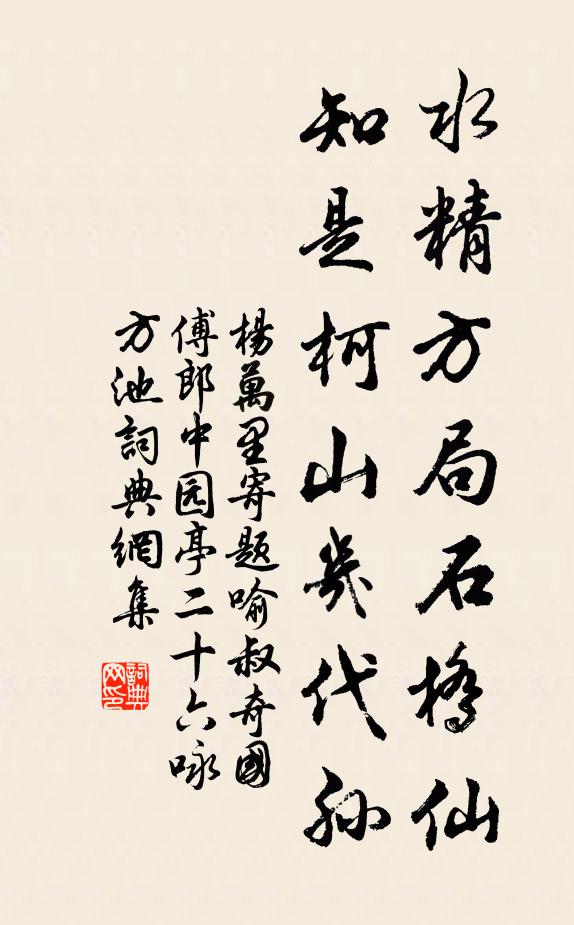 水精方局石橋仙
知是柯山幾代孫
楊萬里寄题喻叔奇國
傅郎中园亭二十六咏
方池詞典網集
詞典
网印